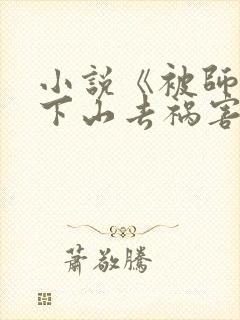 小說《被師
下山去禍害
蕭敬騰